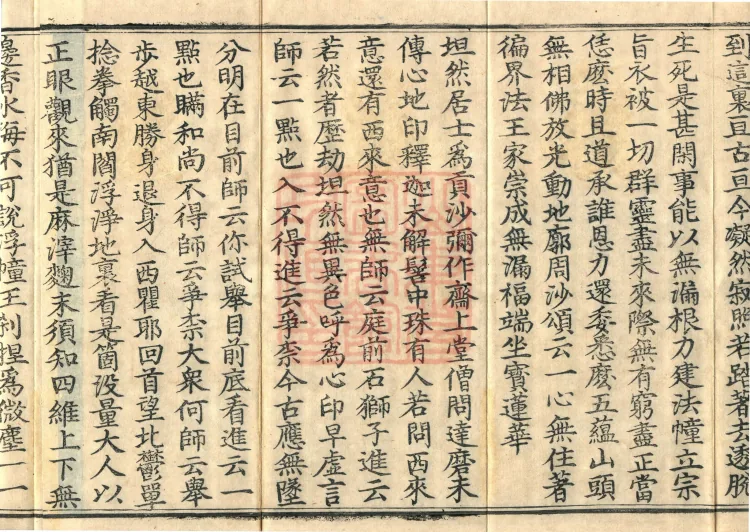 到這裏亘古亘今凝然寂照若踏著去透脫
生死是甚閑事能以無漏根力建法幢立宗
旨衣被一切群靈盡未來際無有窮盡正當
恁麼時且道承誰恩力還委悉麼五蘊山頭
無相佛放光動地廓周沙頌云一心無住著
徧界法王家崇成無漏福端坐寶蓮華
坦然居士為貢沙彌作齋上堂僧問達磨未
傳心地印釋迦未解髻中珠有人若問西來
意還有西來意也無師云庭前石獅子進云
若然者歷劫坦然無異色呼為心印早虛言
師云一點也入不得進云爭柰今古應無墜
分明在目前師云你試舉目前底看進云一
點也瞞和尚不得師云爭柰大衆何師云舉
步越東勝身退身入西瞿耶回首望北鬱單
捻拳觸南閻浮淨地裏看是箇沒量大人以
正眼觀來猶是麻滓麴末須知四維上下無
邊香水海不可說浮幢王剎捏為微塵一一